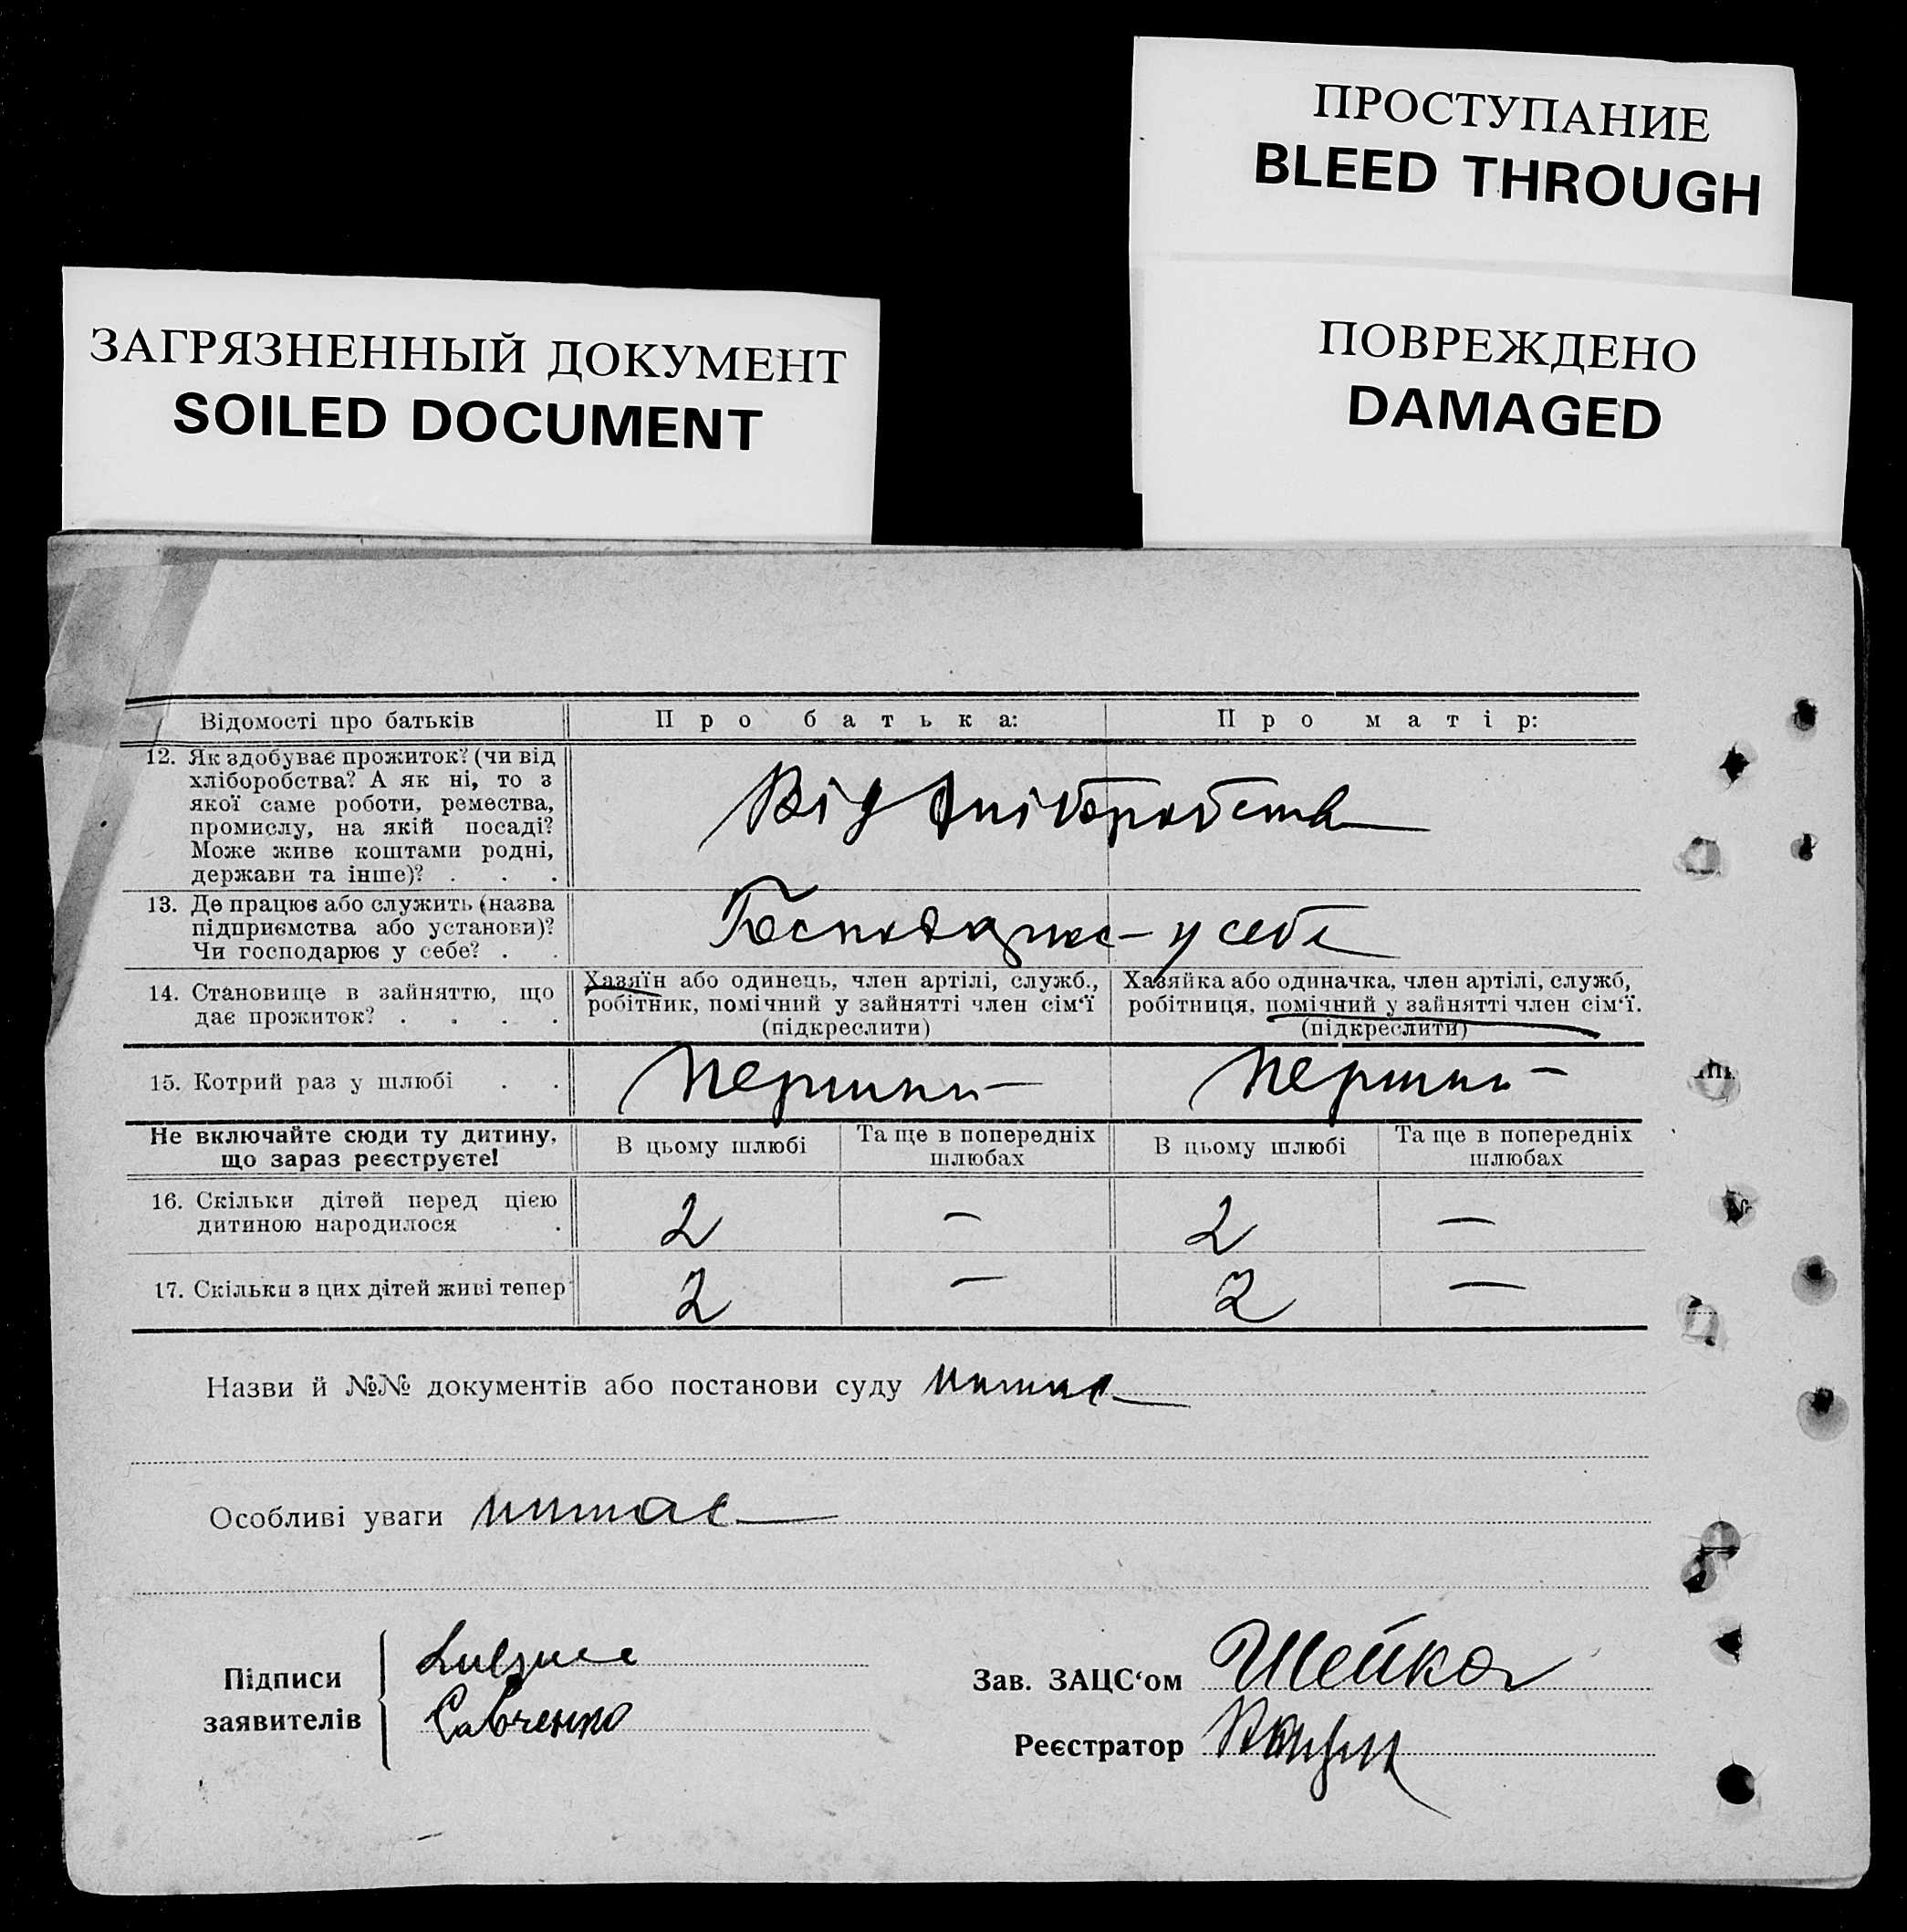 ПРОСТУПАНИЕ
BLEED THROUGH
ЗАГРЯЗНЕННЫЙ ДОКУМЕНТ
SOILED DOCUMENT
ПОВРЕЖДЕНО
DAMAGED
Відомості про батьків Про батька: Про матір:
12. Як здобуває прожиток? (чи від
хліборобства? А як ні, то з
якої саме роботи, ремества,
промислу, на якій посаді?
Може живе коштами родні,
держави та інше)? . . .
Від хліборобства
13. Де працює або служить (назва
підприємства або установи)?
Чи господарює у себе? . .
Господарює у себе
14. Становище в зайняттю, що
дає прожиток? . . . .
Хазяїн або одинець, член артілі, служб.,
робітник, помічний у зайнятті член сім‘ї
(підкреслити)
Хазяйка або одиначка, член артілі, служб,
робітниця, помічний у зайнятті член сім‘ї.
(підкреслити)
15. Котрий раз у шлюбі . . перший перший
Не включайте сюди ту дитину,
що зараз реєструєте!
В цьому шлюбі
Та ще в попередніх
шлюбах
В цьому шлюбі
Та ще в попередніх
шлюбах
16. Скільки дітей перед цією
дитиною народилося .
2 — 2 —
17. Скільки з цих дітей живі тепер 2 — 2 —
Назви й №№ документів або постанови суду немає
Особливі уваги немає
Підписи
заявителів
Савченко
Зав. ЗАЦС‘ом Шейко
Реєстратор